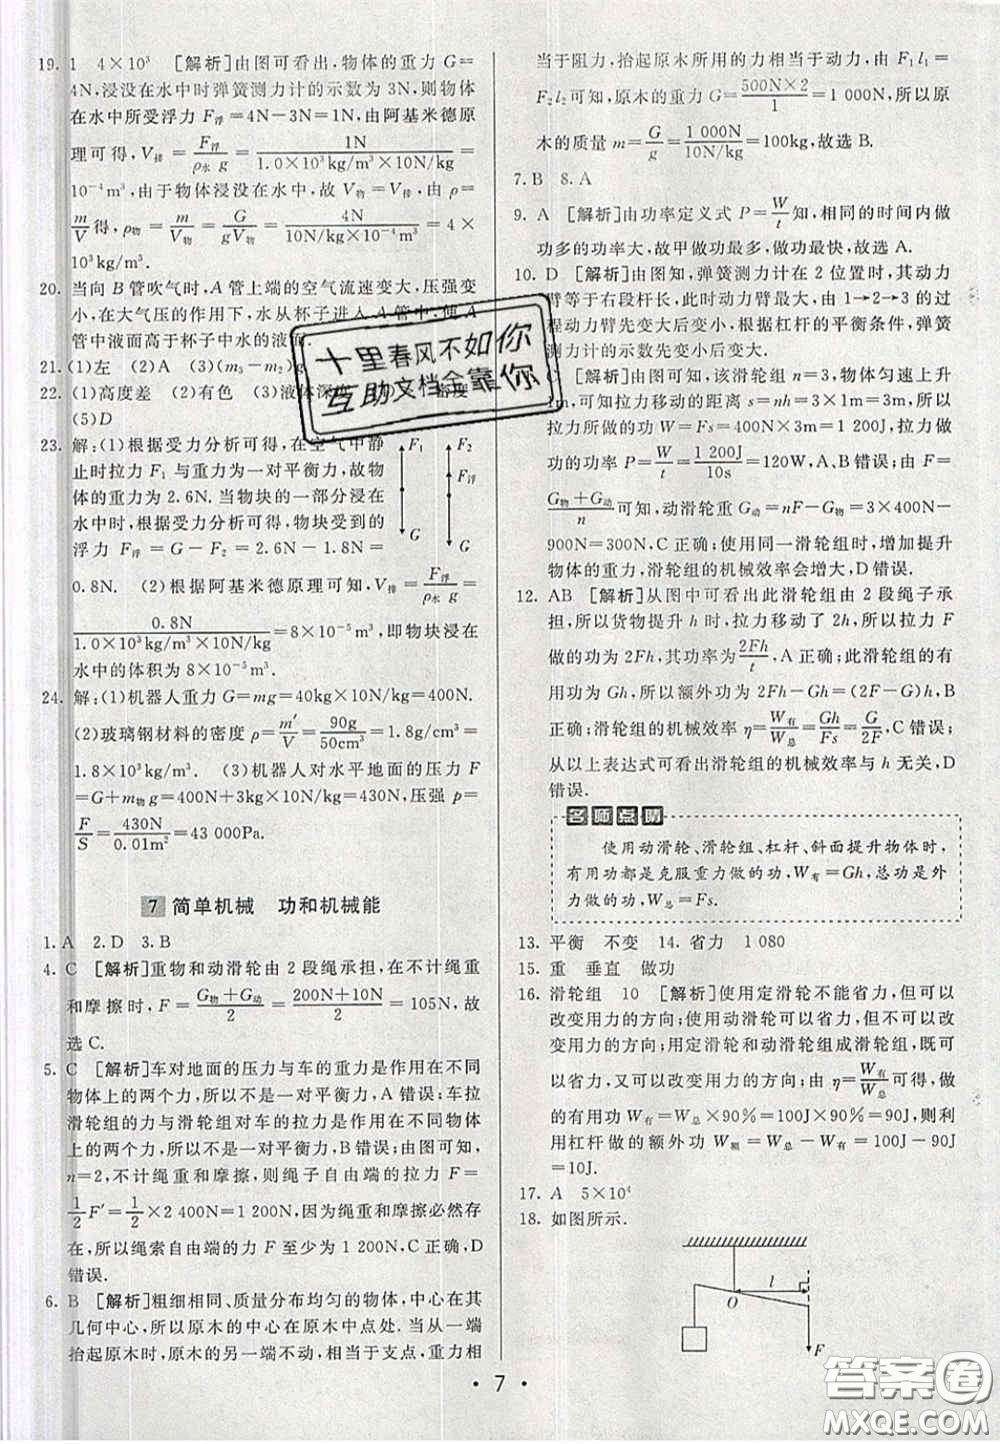 19. 1 4×10³ [解析]由图可看出,物体的重力 G=
4N,浸没在水中时弹簧测力计的示数为 3N,则物体
在水中所受浮力 F浮=4N−3N=1N,由阿基米德原
理可得,V排=F浮/ρ水 g=1N/1.0×10³kg/m³×10N/kg=
10⁻⁴m³,由于物体浸没在水中,故 V物=V排,由 ρ=
m/V可得,ρ物=m/V物=G/gV物=4N/10N/kg×10⁻⁴m³=4×
10³kg/m³.
20. 当向 B 管吹气时,A 管上端的空气流速变大,压强变
小,在大气压的作用下,水从杯子进入 A 管,使 A
管中液面高于杯子中水的液面.
21. (1)左 (2)左 (3)(m₃−m₂)g
22. (1)高度差 (2)有色 (3)液体深度 密度
(5)D
23. 解:(1)根据受力分析可得,在空气中静
止时拉力 F₁ 与重力为一对平衡力,故物
体的重力为 2.6N. 当物块的一部分浸在
水中时,根据受力分析可得,物块受到的
浮力 F浮=G−F₂=2.6N−1.8N=
0.8N. (2)根据阿基米德原理可得,V排=F浮/ρ水 g=
0.8N/1.0×10³kg/m³×10N/kg=8×10⁻⁵m³,即物块浸在
水中的体积为 8×10⁻⁵m³.
F₁ F₂
F浮
G G
24. 解:(1)机器人重力 G=mg=40kg×10N/kg=400N.
(2)玻璃钢材料的密度 ρ=m′/V=90g/50cm³=1.8g/cm³=
1.8×10³kg/m³. (3)机器人对水平地面的压力 F
=G+m物g=400N+3kg×10N/kg=430N,压强 p=
F/S=430N/0.01m²=43 000Pa.
7 简单机械 功和机械能
1. A 2. D 3. B
4. C [解析]重物和动滑轮由 2 段绳承担,在不计绳重
和摩擦时,F=G物+G动/2=200N+10N/2=105N,故
选 C.
5. C [解析]车对地面的压力与车的重力是作用在不同
物体上的两个力,所以不是一对平衡力,A 错误;车拉
滑轮组的力与滑轮组对车的拉力是作用在不同物体
上的两个力,所以不是一对平衡力,B 错误;由图可知,
n=2,不计绳重和摩擦,则绳子自由端的拉力 F=
1/2F′=1/2×2 400N=1 200N,因为绳重和摩擦必然存
在,所以绳索自由端的力 F 至少为 1 200N,C 正确,D
错误.
6. B [解析]粗细相同、质量分布均匀的物体,中心在其
几何中心,所以原木的中心在原木中点处. 当从一端
抬起原木时,原木的另一端不动,相当于支点,重力相
当于阻力,抬起原木所用的力相当于动力,由 F₁l₁
=F₂l₂ 可知,原木的重力 G=500N×2/1=1 000N,所以原
木的质量 m=G/g=1 000N/10N/kg=100kg,故选 B.
7. B 8. A
9. A [解析]由功率定义式 P=W/t知,相同的时间内做
功多的功率大,故甲做功最多,做功最快,故选 A.
10. D [解析]由图知,弹簧测力计在 2 位置时,其动力
臂等于右段杆长,此时动力臂最大,由 1→2→3 的过
程动力臂先变大后变小,根据杠杆的平衡条件,弹簧
测力计的示数先变小后变大.
C [解析]由图可知,该滑轮组 n=3,物体匀速上升
1m,可知拉力移动的距离 s=nh=3×1m=3m,所以
拉力所做的功 W=Fs=400N×3m=1 200J,拉力做
功的功率 P=W/t=1 200J/10s=120W,A、B 错误;由 F=
G物+G动/n可知,动滑轮重 G动=nF−G物=3×400N−
900N=300N,C 正确;使用同一滑轮组时,增加提升
物体的重力,滑轮组的机械效率会增大,D错误.
12. AB [解析]从图中可看出此滑轮组由 2 段绳子承
担,所以货物提升 h 时,拉力移动了 2h,所以拉力 F
做的功为 2Fh,其功率为2Fh/t,A 正确;此滑轮组的有
用功为 Gh,所以额外功为 2Fh−Gh=(2F−G)h,B
正确;滑轮组的机械效率 η=W有/W总=Gh/Fs=G/2F,C 错误;
从以上表达式可看出滑轮组的机械效率与 h 无关,D
错误.
名师点睛
使用动滑轮、滑轮组、杠杆、斜面提升物体时,
有用功都是克服重力做的功,W有=Gh,总功是外
力做的功,W总=Fs.
13. 平衡 不变 14. 省力 1 080
15. 重 垂直 做功
16. 滑轮组 10 [解析]使用定滑轮不能省力,但可以
改变用力的方向;使用动滑轮可以省力,但不可以改
变用力的方向;用定滑轮和动滑轮组成滑轮组,既可
以省力,又可以改变用力的方向;由 η=W有/W总可得,做
的有用功 W有=W总×90%=100J×90%=90J,则利
用杠杆做的额外功 W额=W总−W有=100J−90J
=10J.
17. A 5×10⁴
18. 如图所示.
l
O
F
· 7 ·
十里春风不如你
互助文档全靠你
答案圈
MXQE.COM